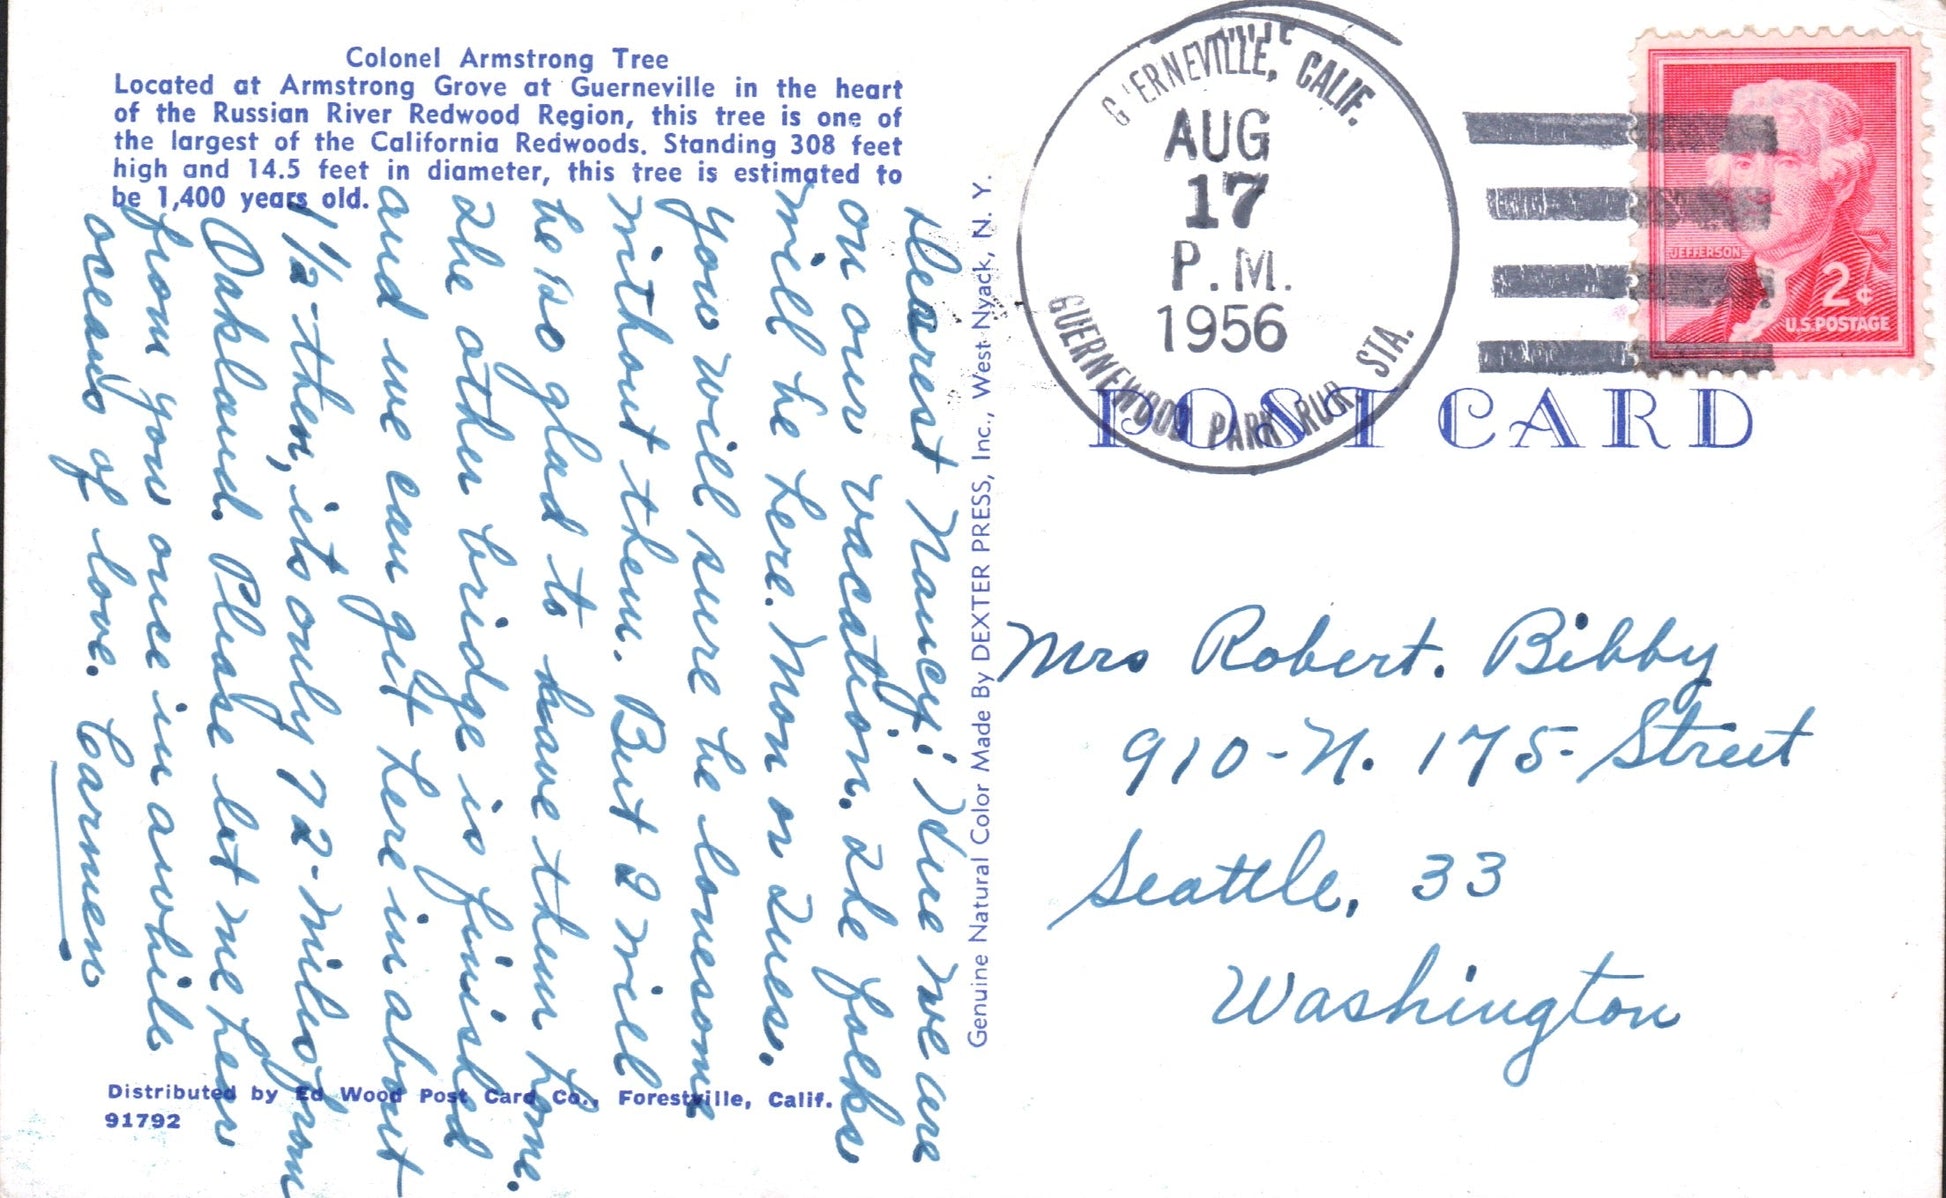 Colonel Armstrong Tree
Located at Armstrong Grove at Guerneville in the heart
of the Russian River Redwood Region, this tree is one of
the largest of the California Redwoods. Standing 308 feet
high and 14.5 feet in diameter, this tree is estimated to
be 1,400 years old.
Dearest Nancy: Here we are
on our vacation. The folks
will be here. Mon or Tues.
You will sure be lonesome
without them. But I will
be so glad to have them home.
The other bridge is finished
and we can get here in about
1 1/2 - then, its only 72-miles from
Oakland. Please let me hear
from you once in awhile
oceans of love. Carmen
Distributed by Ed Wood Post Card Co., Forestville, Calif.
91792
Genuine Natural Color Made By DEXTER PRESS, Inc., West Nyack, N. Y.
GUERNEVILLE, CALIF.
AUG
17
P.M.
1956
GUERNEWOOD PARK RUR. STA.
JEFFERSON
2¢
U.S. POSTAGE
POST CARD
Mrs Robert. Bibby
910-N. 175- Street
Seattle, 33
Washington